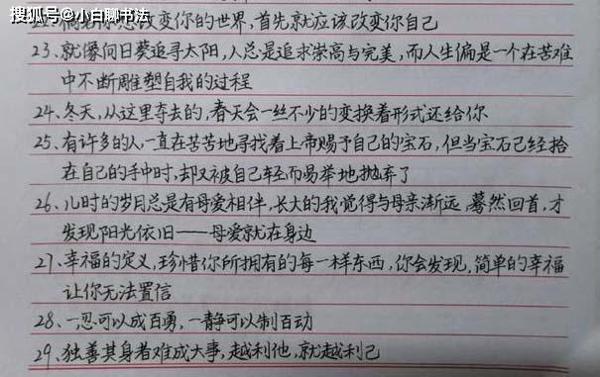 搜狐号@小白聊书法
想改变你的世界,首先就应该改变你自己
23、就像向日葵追寻太阳,人总是追求崇高与完美,而人生偏是一个在苦难
中不断雕塑自我的过程
24、冬天,从这里夺去的,春天会一丝不少的变换着形式还给你
25、有许多的人一直在苦苦地寻找着上帝赐予自己的宝石,但当宝石已经拾
在自己的手中时,却又被自己轻而易举地抛弃了
26、儿时的岁月总是有母爱相伴,长大的我觉得与母亲渐远,蓦然回首,才
发现阳光依旧——母爱就在身边
27、幸福的定义,珍惜你所拥有的每一样东西,你会发现,简单的幸福
让你无法置信
28、一忍可以成百勇,一静可以制百动
29、独善其身者难成大事,越利他,就越利己